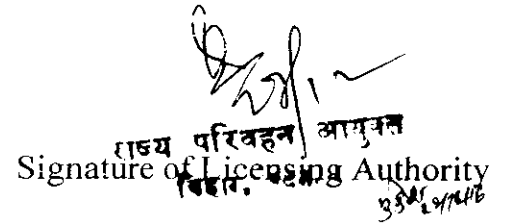 राज्य परिवहन आयुक्त
Signature of Licensing Authority
बिहार, पटना